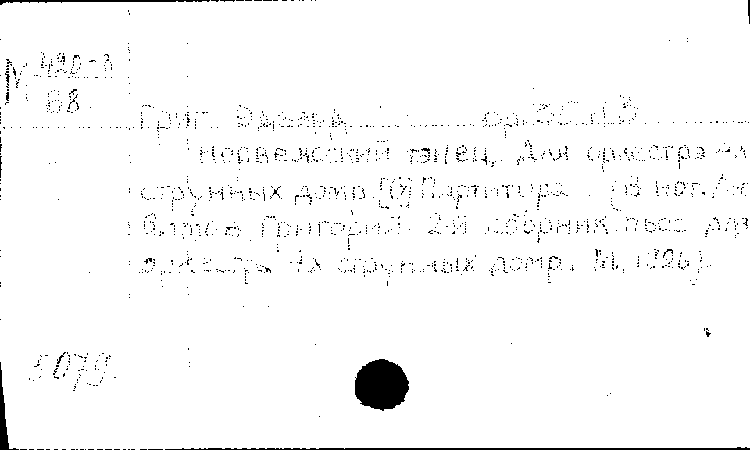 М 420-3
68
Григ Эдвард op. 35 №3
Норвежский танец. Для оркестра 4х
струнных домр. [8] Партитура. (В нот.
Григорий 2-й сборник пьес для
оркестра 4х струнных домр. М, 1926).
5079.